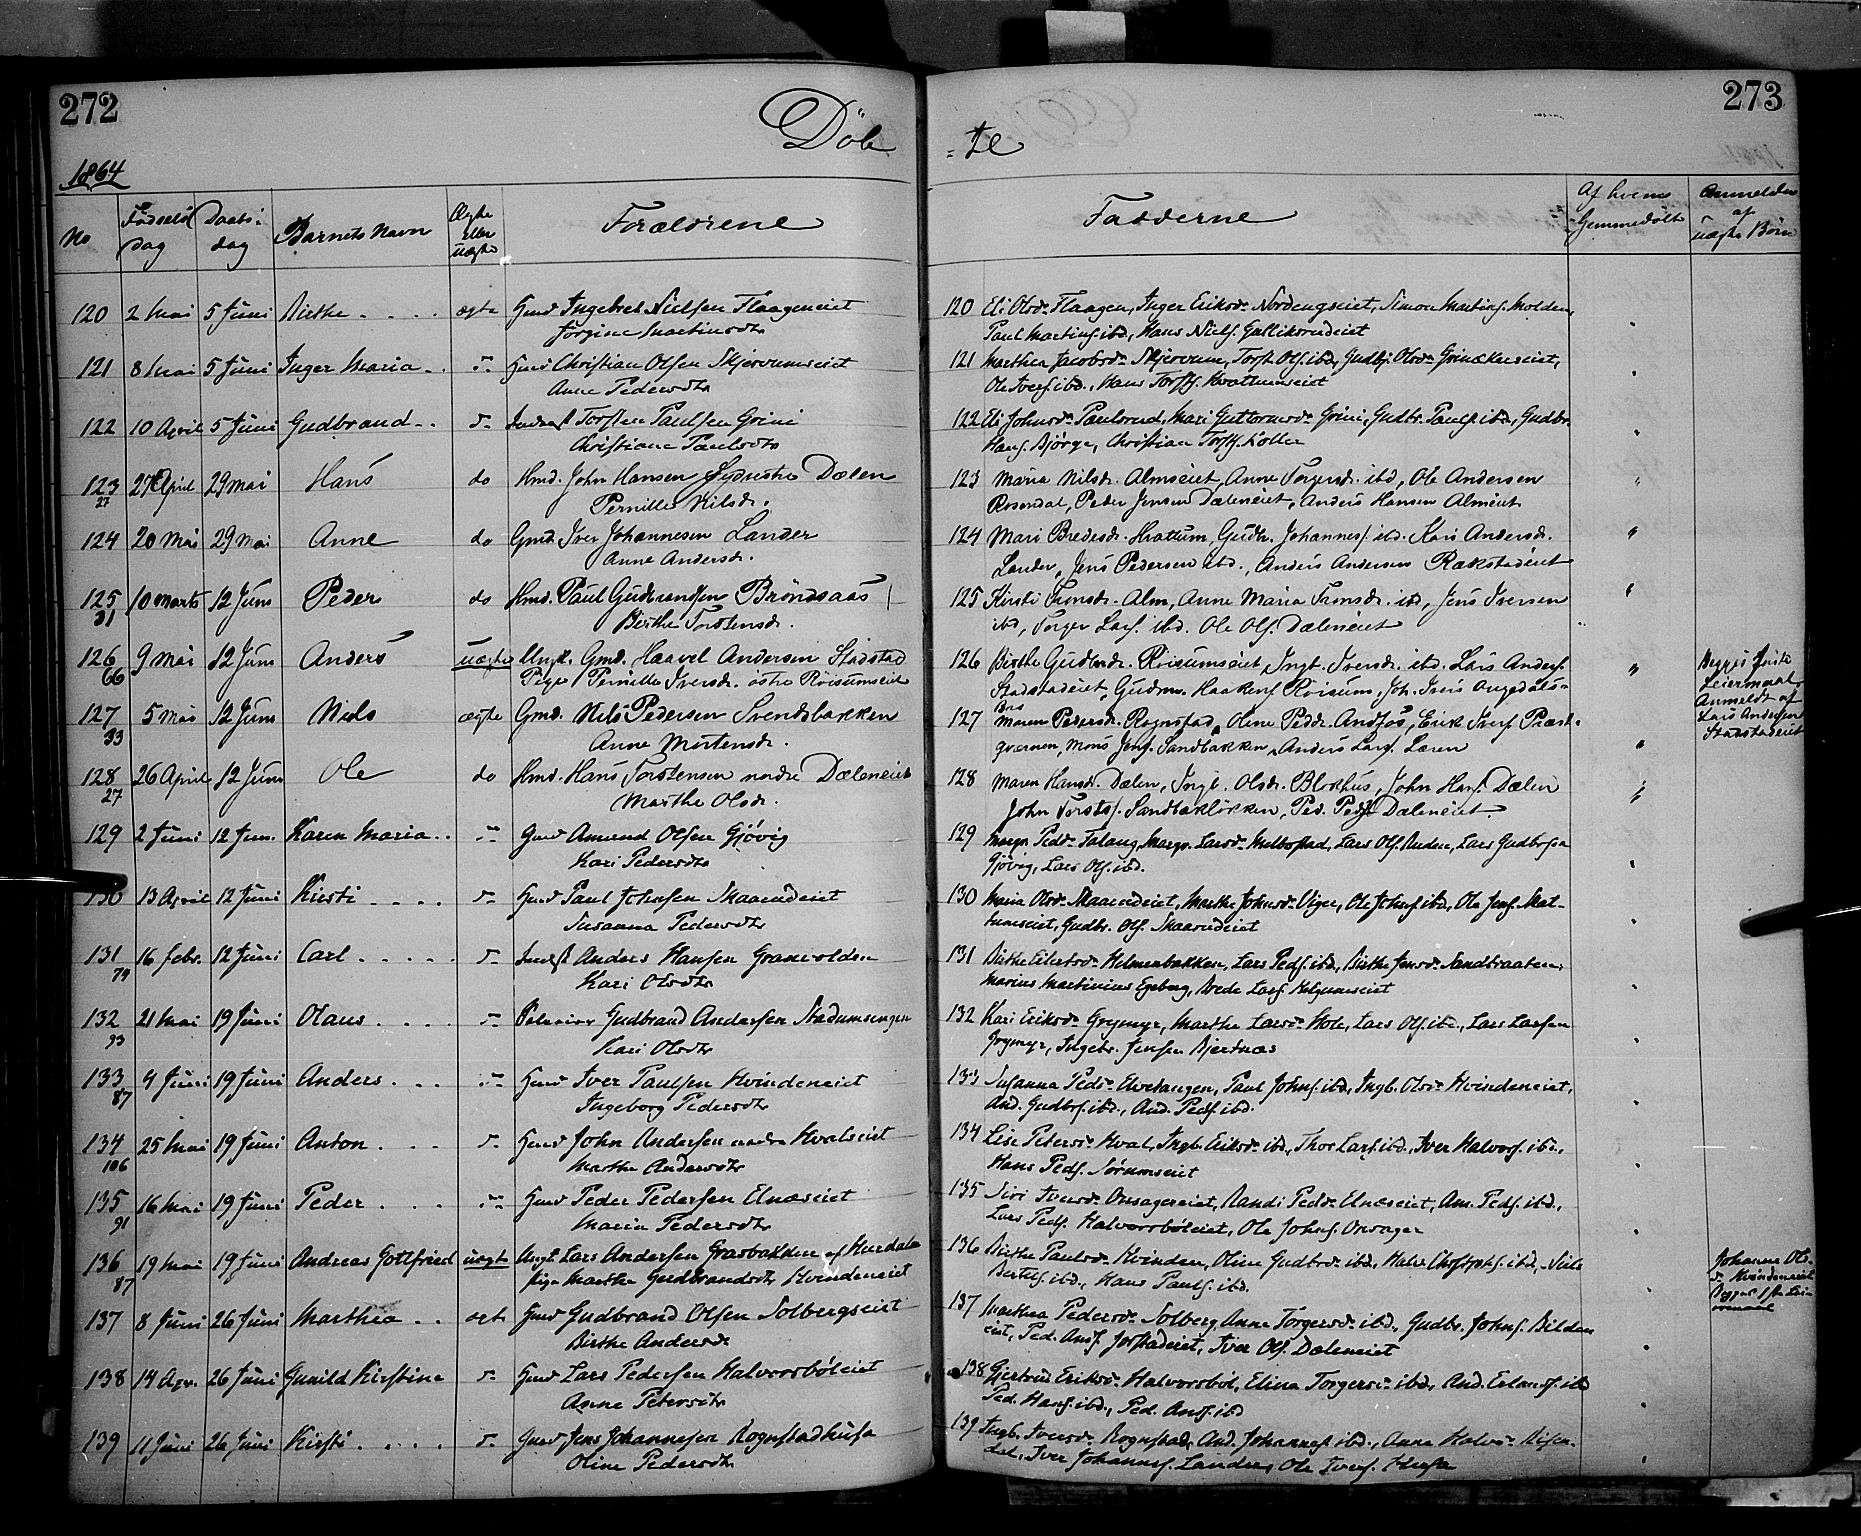 272
Döb
1864
No
Fødsels dag
Daabs: dag
Barnets Navn
Ægte eller uægte
Forældrene
120 2 Mai 5 Juni Birthe ægte Gmd Ingebret Nielsen Flaageneiet
Jørgine Martinsdtr
121 8 Mai 5 Juni Inger Maria Gmd Christian Olsen Skjervumseiet
Anne Pedersdtr
122 10 April 5 Juni Gudbrand Inderst Torsten Paulsen Grini
Christiane Paulsdtr
123 27 April 29 Mai Hans do Hmd. John Hansen Dælen
27 Pernille Nilsdr.
124 20 Mai 29 Mai Anne do Gmd. Iver Johannesen Lander
Anne Andersdr.
125 10 Marts 12 Juni Peder do Hmd. Paul Gudbrandsen Brøndsaas
31 Birthe Torstensdr.
126 9 Mai 12 Juni Anders uægte Ungk. Gmd. Haavel Andersen Stadstad
66 Pige Pernille Iversdr. østre Röisumseiet
127 5 Mai 12 Juni Niels ægte Gmd. Nils Pedersen Svendsbakken
33 Anne Mortensdr.
128 26 April 12 Juni Ole do Hmd. Hans Torstensen nordre Dæleneiet
27 Marthe Olsdr.
129 2 Juni 12 Jun. Karen Maria Gmd Amund Olsen Gjövig
Kari Pedersdtr
130 13 April 12 Juni Kirsti Gmd Paul Johnsen Skaarudeiet
Susanna Pedersdtr
131 16 febr. 12 Juni Carl Inderst Anders Hansen Granevolden
79 Kari Olsdtr
132 21 Mai 19 Juni Olaus Gudbrand Andersen
93 Kari Olsdtr
133 4 Juni 19 Juni Anders Gmd Iver Paulsen Hvindeneiet
87 Ingeborg Pedersdtr
134 25 Mai 19 Juni Anton Gmd John Andersen nedre Hvalseiet
106 Marthe Andersdtr
135 16 Mai 19 Juni Peder Gmd Peder Pedersen Elnæseiet
91 Maria Pedersdtr
136 19 Mai 19 Juni Andreas Gottfried uægte Ungk. Lars Andersen Grasbakken af Hurdalen
87 Pige Marthe Gudbrandsdtr Hvindeneiet
137 8 Juni 26 Juni Marthea ægte Gmd Gudbrand Olsen Solbergseiet
Birthe Andersdr
138 14 Apr. 26 Juni Gunild Kirstine Gmd Lars Pedersen Halvorsböleiet
Anne Petersdtr
139 11 Juni 26 Juni Kirsti Gmd Jens Johannesen Rognstadhusa
Oline Pedersdtr
273
= te
Fadderne
Af hvem hjemmedöbt
Anmeldelse af uægte Børn
120 Eli Olsdr Flaagen, Inger Eriksdr Nordengseiet, Simon Martins. Molden,
Paul Martins. ibd, Hans Niels. Gallikerudeiet
121 Marthea Jacobsdr Skjervum, Torst. Ols. ibd, Gudbj. Olsdr Grinakereiet,
Ole Ivers. ibd., Hans Torst. Hvattumseiet
122 Eli Johnsdr Paulsrud, Mari Guttormsdr Grini, Gudbr. Pauls. ibd, Gudbr.
Hans. Bjørge, Christian Torst. Koller
123 Maria Nilsdr. Almseiet, Anne Torgersdr. ibd, Ole Andersen
Rosendal, Peder Jensen Dæleneiet, Anders Hansen Almeiet
124 Mari Bredesdr. Hvattum, Gudbr. Johannes. ibd. Kari Andersdr.
Lander, Jens Pedersen ibd., Anders Andersen Rækstadeiet
125 Kirsti Alm, Anne Maria ibd, Jens Iversen
ibd, Torger Lars. ibd. Ole Ols. Dæleneiet
126 Birthe Gudbrdr. Röisumseiet, Ingb. Iversdr. ibd. Lars Anders.
Stadstadeiet, Gudm. Haakens. Röisum, Joh. Ivers
127 Maren Pedersdr. Rognstad, Oline Pedrdr. Erik Ivers. Præst-
qværnen, Mons Jens. Sandbakken, Anders Lars. Læren
128 Maren Hansdr. Dælen, Ingb. Olsdr. Blokhus, John Hans. Dælen
John Torsts. Sandbakløkken, Ped. Peds. Dæleneiet.
129 Margr. Pedr. Falang, Margr. Larsdr Melbostad, Lars Ols. Lars Gudbrs.
Gjövig, Lars Ols. ibd.
130 Maria Olsdr Skaarudeiet, Marthe Johnsdr Viger, Ole Johns. ibd, Ole Jens.
Gudbr. Ols. Skaarudeiet
131 Birthe Eilertsdr Helmenbakken, Lars Peds. ibd, Birthe Jensdr Sandbraaten,
Marius Martinius Egeberg, Brede Lars. Helgumseiet
132 Kari Eriksdr Grymyr, Marthe Larsdr Hole, Lars Ols. ibd., Lars Larsen
Grymyr, Ingebr. Jensen Bjertnæs
133 Susanna Pedsdr Paul Johns. ibd, Ingb. Olsdr Hvindeneiet,
And. Gudbrs. ibd., And. Peds. ibd.
134 Lise Petersdr Hval, Ingb. Eriksdr ibd, Thor Lars. ibd., Iver Halvors. ibd.,
Hans Peds. Sørumseiet
135 Siri Iversdr Onsagereiet, Randi Pedsdr Elnæseiet, Am. Peds. ibd.,
Lars Peds. Halvorsböleiet, Ole Johns. Onsager
136 Birthe Paulsdr Hvinden, Oline Gudbrdr ibd, Halv. ibd.,
Bertels. ibd., Hans Pauls. ibd.
137 Marthea Pedersdr Solberg, Anne Torgersdr ibd., Gudbr. Johns. Bilden
eiet, Ped. Ands. Jorstadeiet, Iver Ols. Dæleneiet
138 Gjertrud Eriksdr Halvorsböl, Elina Torgersdr ibd, And. Erlands. ibd
Ped. Hans. ibd., Ped. Ands. ibd
139 Ingb. Iversdr Rognstad, And. Johannes. ibd., Anna
Iver Johannes. Lander, Ole Ivers. Husa
Begges første
Leiermaal,
Anmeldt af
Lars Andersen
Stadstadeiet
Johanne Ols-
dr Hvindeneiet
Begges 1ste Lei-
ermaal